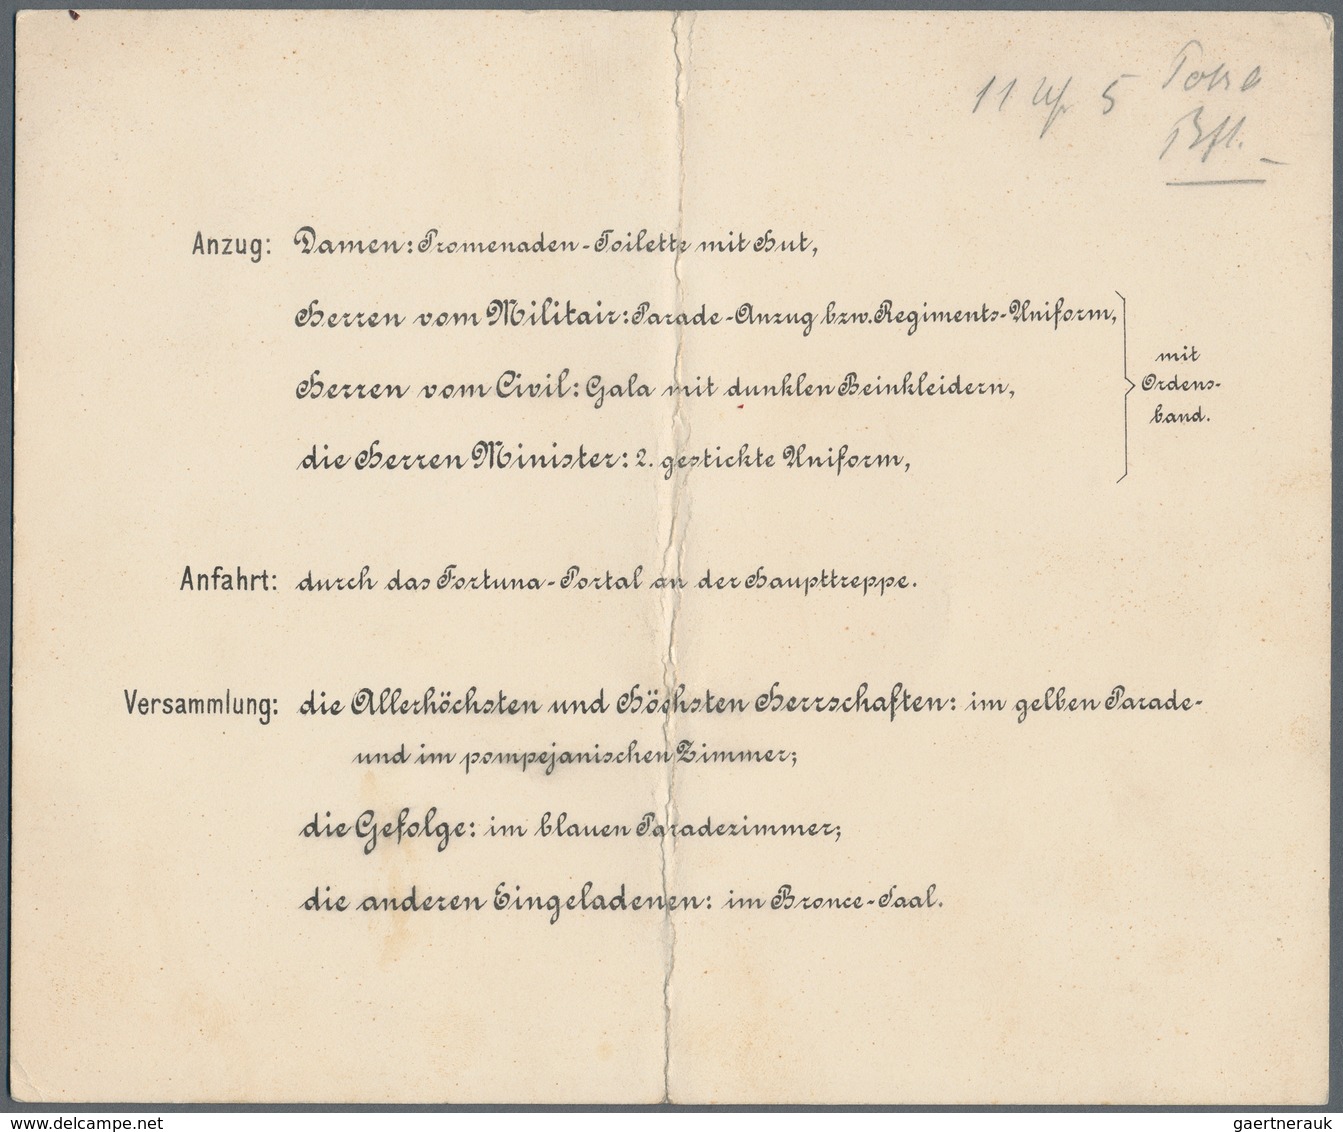 11 Uhr 5
Bhf.
Anzug: Damen: Promenaden-Toilette mit Hut,
Herren vom Militair: Parade-Anzug bzw. Regiments-Uniform,
Herren vom Civil: Gala mit dunklen Beinkleidern,
die Herren Minister: 2. gestickte Uniform,
mit
Ordens-
band.
Anfahrt: durch das Fortuna-Portal an der Haupttreppe.
Versammlung: die Allerhöchsten und Höchsten Herrschaften: im gelben Parade-
und im pompejanischen Zimmer;
die Gefolge: im blauen Paradezimmer;
die anderen Eingeladenen: im Bronce-Saal.
www.delcampe.net
gaertnerauk